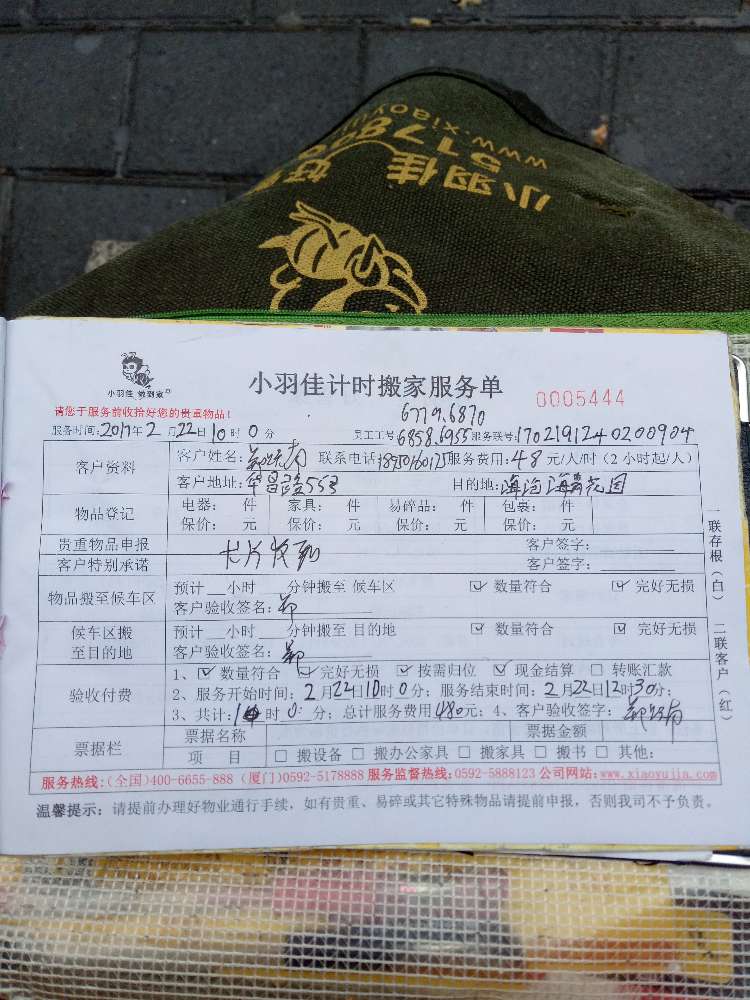 小羽佳
517888
www.xiaoyu
小羽佳 做到家
小羽佳计时搬家服务单
0005444
请您于服务前收拾好您的贵重物品!
6779.6870
服务时间:2017年2月22日10时0分 员工工号6858.6955服务联号:1702191240200904
客户资料
客户姓名: 联系电话 服务费用:48元/人/时(2小时起/人)
客户地址:华昌路553 目的地:海沧海翡花园
物品登记
电器: 件 家具: 件 易碎品: 件 包裹: 件
保价: 元 保价: 元 保价: 元 保价: 元
贵重物品申报 客户签字:
客户特别承诺 客户签字:
物品搬至候车区
预计__小时___分钟搬至 候车区 ☑ 数量符合 ☑ 完好无损
客户验收签名:郑
候车区搬至目的地
预计__小时___分钟搬至 目的地 ☑ 数量符合 ☑ 完好无损
客户验收签名:郑
验收付费
1、☑ 数量符合 ☑ 完好无损 ☑ 按需归位 ☑ 现金结算 □ 转账汇款
2、服务开始时间:2月22日10时0分;服务结束时间:2月22日12时30分;
3、共计:10时0分;总计服务费用480元;4、客户验收签字:
票据栏
票据名称 票据金额
项 目 □ 搬设备 □ 搬办公家具 □ 搬家具 □ 搬书 □ 其他:
一联存根(白) 二联客户(红)
服务热线:(全国)400-6655-888 (厦门)0592-5178888 服务监督热线:0592-5888123 公司网站:www.xiaoyujia.com
温馨提示:请提前办理好物业通行手续,如有贵重、易碎或其它特殊物品请提前申报,否则我司不予负责。